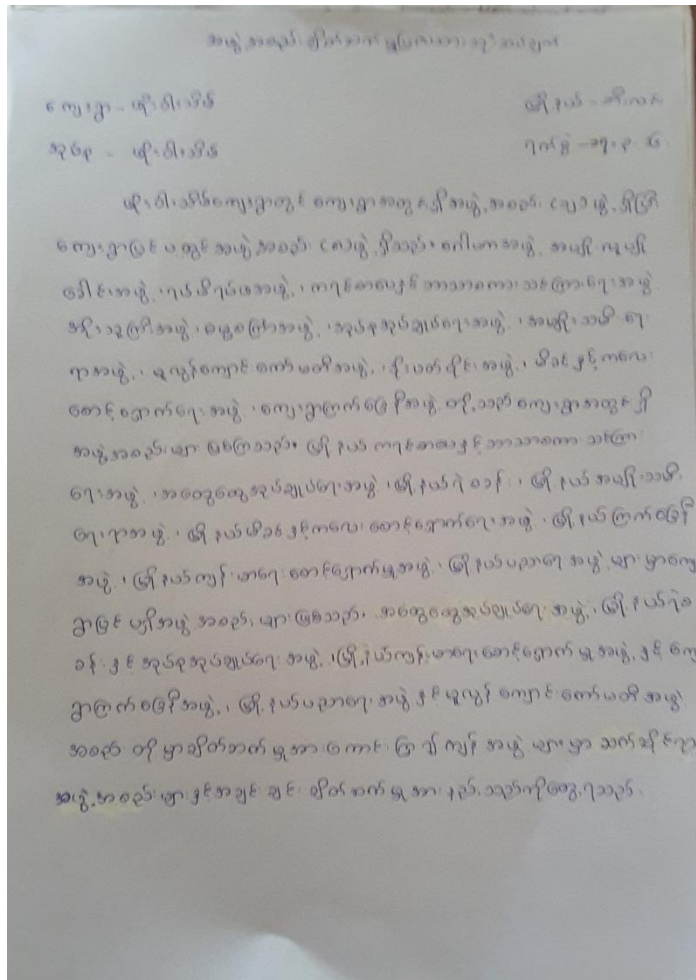 အဖွဲ့အစည်းချိတ်ဆက်မှုပြကားသုံးသပ်ချက်
ကျေးရွာ - ဟိုးဝါးသိမ် မြို့နယ် -
အုပ်စု - ဟိုးဝါးသိမ် ရက်စွဲ -
ဟိုးဝါးသိမ်ကျေးရွာတွင် ကျေးရွာအတွင်းရှိအဖွဲ့အစည်း ၊ရှိပြီး
ကျေးရွာပြင်ပတွင်အဖွဲ့အစည်း ရှိသည်။ ဂေါပကအဖွဲ့၊
ခေါင်းအဖွဲ့၊ ရပ်မိရပ်ဖအဖွဲ့၊ ကရင်စာပေနှင့်ဘာသာစကားသင်ကြားရေးအဖွဲ့
အဖွဲ့၊ အဖွဲ့၊ အုပ်စုအုပ်ချုပ်ရေးအဖွဲ့၊ အမျိုးသမီးရေး
ရာအဖွဲ့၊ မူလွန်ကျောင်းကော်မတီအဖွဲ့၊ အဖွဲ့၊ မိခင်နှင့်ကလေး
စောင့်ရှောက်ရေးအဖွဲ့၊ ကျေးရွာကြက်ခြေနီအဖွဲ့တို့သည်ကျေးရွာအတွင်းရှိ
အဖွဲ့အစည်းများဖြစ်ကြသည်။ မြို့နယ်ကရင်စာပေနှင့်ဘာသာစကားသင်ကြား
ရေးအဖွဲ့၊ အထွေထွေအုပ်ချုပ်ရေးအဖွဲ့၊ မြို့နယ်ရဲစခန်း၊ မြို့နယ်အမျိုးသမီး
ရေးရာအဖွဲ့၊ မြို့နယ်မိခင်နှင့်ကလေးစောင့်ရှောက်ရေးအဖွဲ့၊ မြို့နယ်ကြက်ခြေနီ
အဖွဲ့၊ မြို့နယ်ကျန်းမာရေးစောင့်ရှောက်မှုအဖွဲ့၊ မြို့နယ်ပညာရေးအဖွဲ့များမှာကျေး
ရွာပြင်ပရှိအဖွဲ့အစည်းများဖြစ်သည်။ အထွေထွေအုပ်ချုပ်ရေးအဖွဲ့၊ မြို့နယ်ရဲစ
ခန်းနှင့်အုပ်စုအုပ်ချုပ်ရေးအဖွဲ့၊ မြို့နယ်ကျန်းမာရေးစောင့်ရှောက်မှုအဖွဲ့နှင့်ကျေး
ရွာကြက်ခြေနီအဖွဲ့၊ မြို့နယ်ပညာရေးအဖွဲ့နှင့်မူလွန်ကျောင်းကော်မတီအဖွဲ့
အစည်းတို့မှာချိတ်ဆက်မှုအားကောင်းပြီးကျန်အဖွဲ့များမှာသက်ဆိုင်ရာ
အဖွဲ့အစည်းများနှင့်အချင်းချင်းချိတ်ဆက်မှုအားနည်းသည်ကိုတွေ့ရသည်။